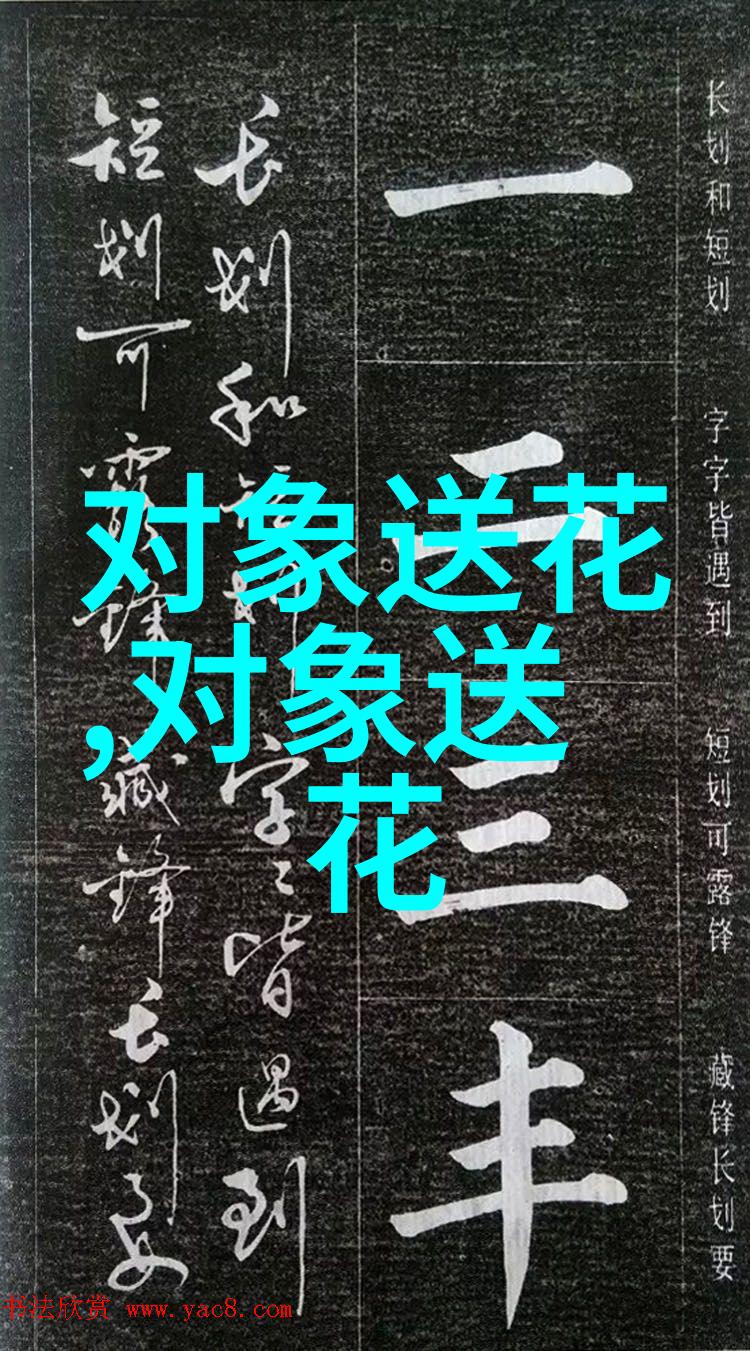 长划和短划 字字皆遇到 短划可露锋 藏锋长划要
一
二
三
丰
长划和短划 字々皆遇到
短划可露锋 藏锋长划要
对象送花
,对象送
花
书法欣赏 www.yac8.com